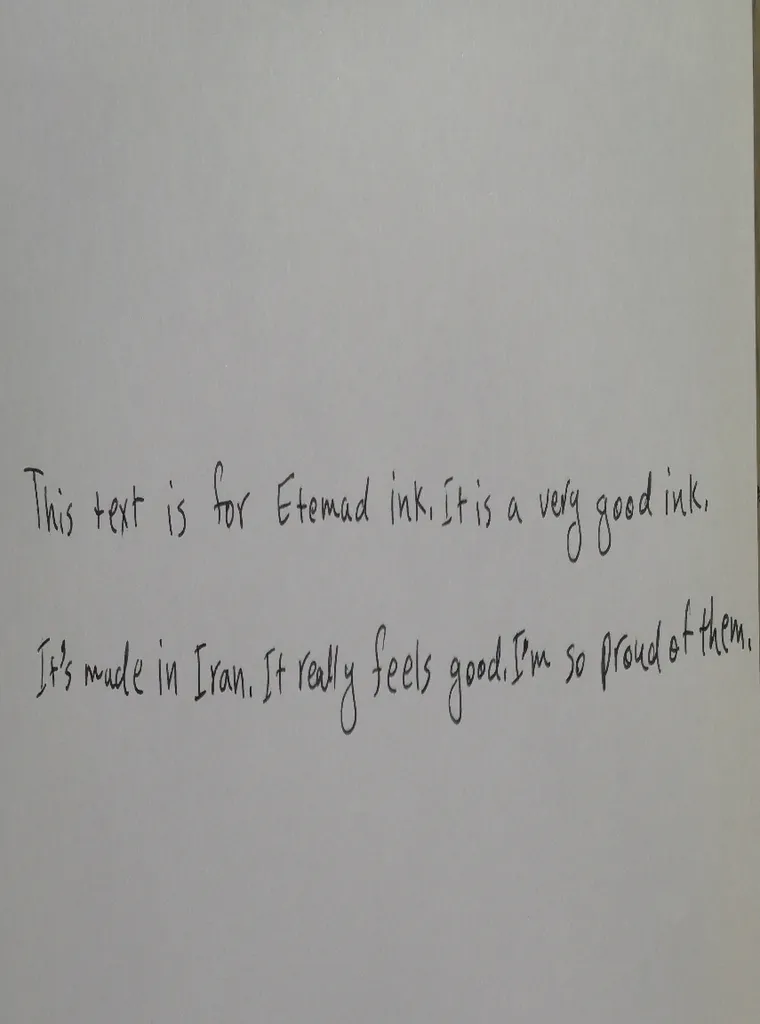 This text is for Etemad ink. It is a very good ink.
It's made in Iran. It really feels good. I'm so proud of them.